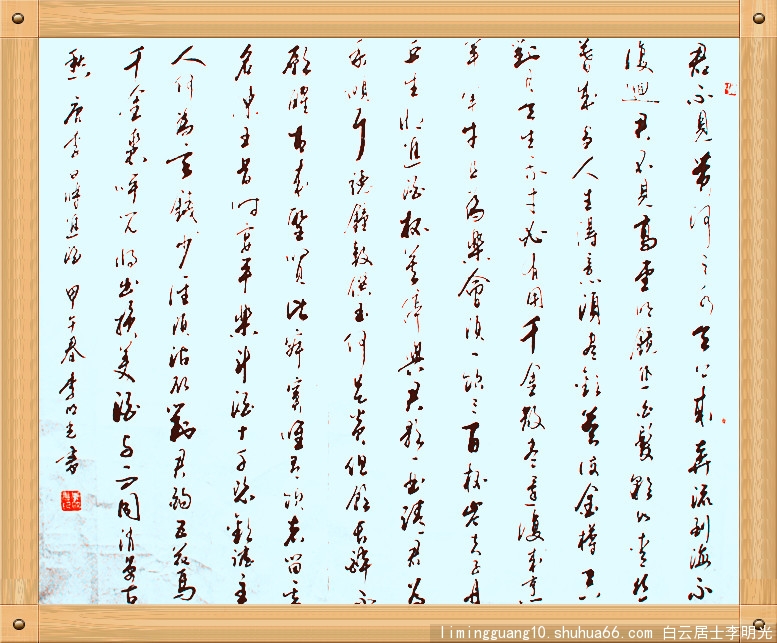 君不見黃河之水天上來奔流到海不
復迴君不見高堂明鏡悲白髮朝如青絲
暮成雪人生得意須盡歡莫使金樽空
對月天生我才必有用千金散盡還復來烹
羊宰牛且為樂會須一飲三百杯岑夫子丹
丘生將進酒杯莫停與君歌一曲請君為
我傾耳聽鐘鼓饌玉何足貴但願長醉不
願醒古來聖賢皆寂寞惟有飲者留其
名陳王昔時宴平樂斗酒十千恣歡謔主
人何為言錢少徑須沽取對君酌五花馬
千金裘呼兒將出換美酒與爾同消萬古
愁 唐李白將進酒 甲午春李明光書
limingguang10.shuhua66.com 白云居士李明光